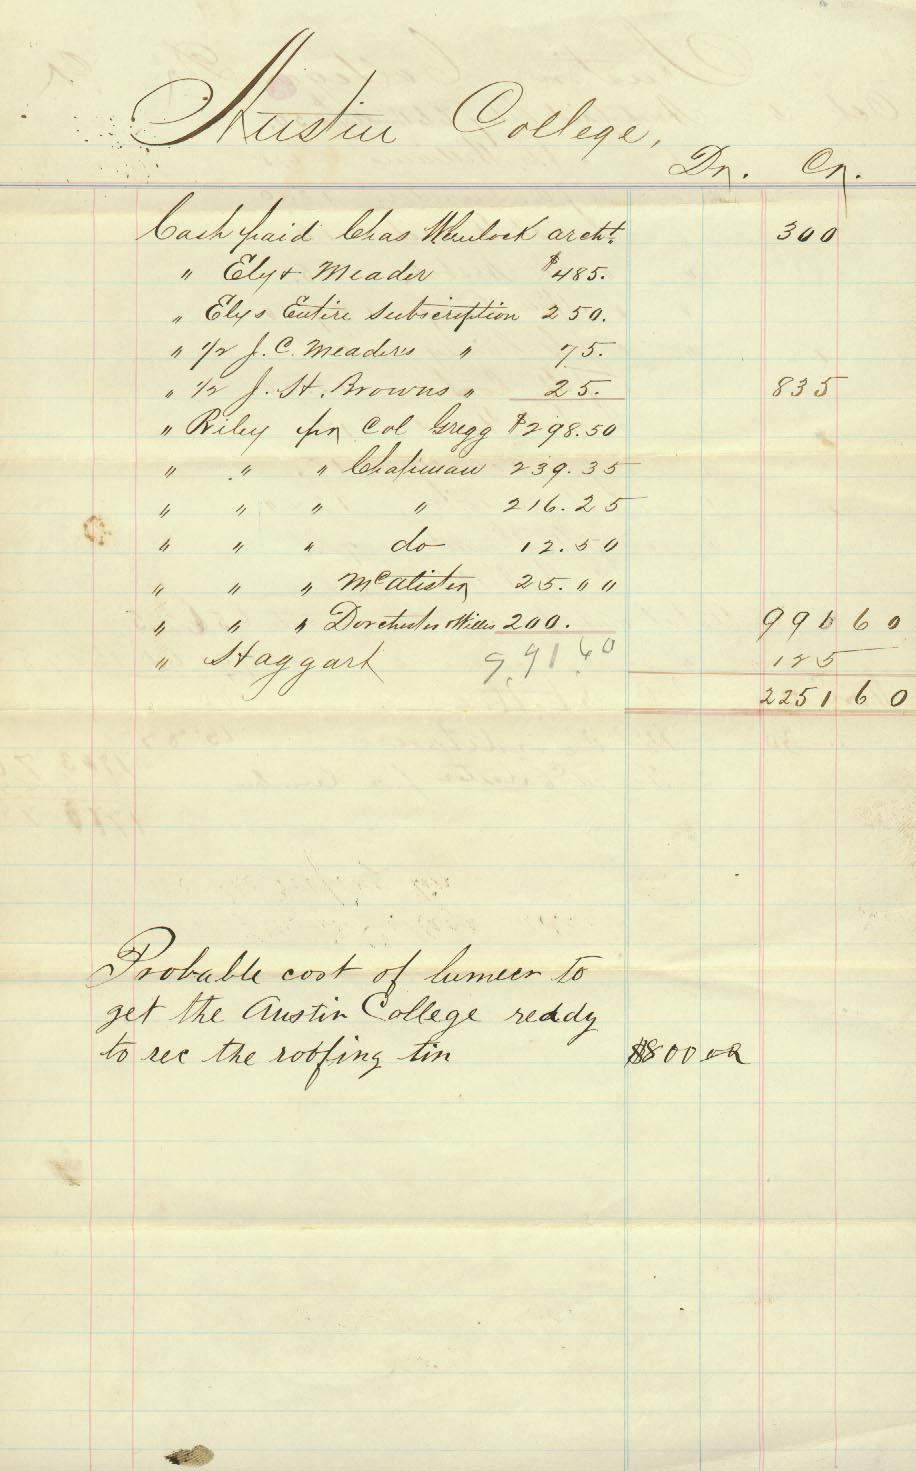 Austin College,
Dr. Cr.
Cash paid Chas Wheelock archt. 300
" Ely & Meader $485.
" Elys Entire Subscription 250.
" 1/2 J. C. Meaders " 75.
" 1/2 J. St. Browns " 25. 835
" Riley pr Col Gregg $298.50
" " " Chapman 239.35
" " " " 216.25
" " " do 12.50
" " " McAlister 25.00
" " " Dorchester & Willis 200. 991 60
" Haggart 9,91.60 125
2251 60
Probable cost of lumeer to
get the Austin College ready
to rec the roofing tin $800 00